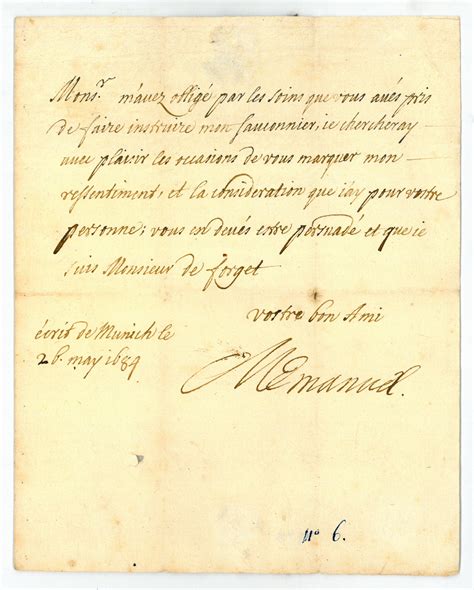 Monsr. m'avez obligé par les soins que vous avés pris
de faire instruire mon fauconnier, ie chercheray
avec plaisir les occasions de vous marquer mon
ressentiment, et la consideration que i'ay pour vostre
personne, vous en devés estre persuadé et que ie
suis Monsieur de forget
vostre bon Ami
écrit de Munich le
26. may 1684
MEmanuel.
no 6.